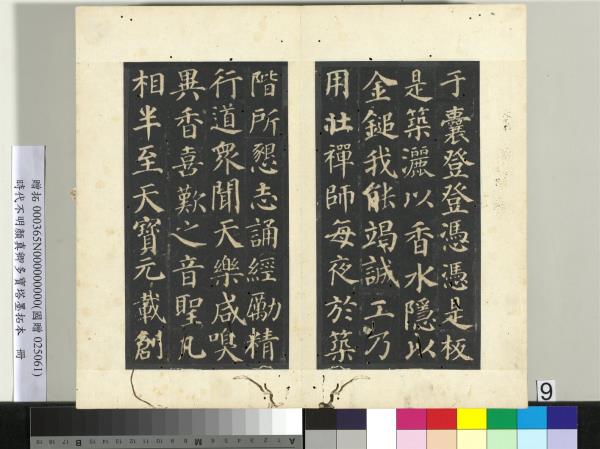 于囊登登憑憑是板
是築灑以香水隱以
金鎚我能竭誠工乃
用壯禪師每夜於築
階所懇志誦經勵精
行道眾聞天樂咸嗅
異香喜歎之音聖凡
相半至天寶元載創
贈拓 000365N000000000(國贈 025061)
時代不明顏真卿多寶塔墨拓本 冊
9